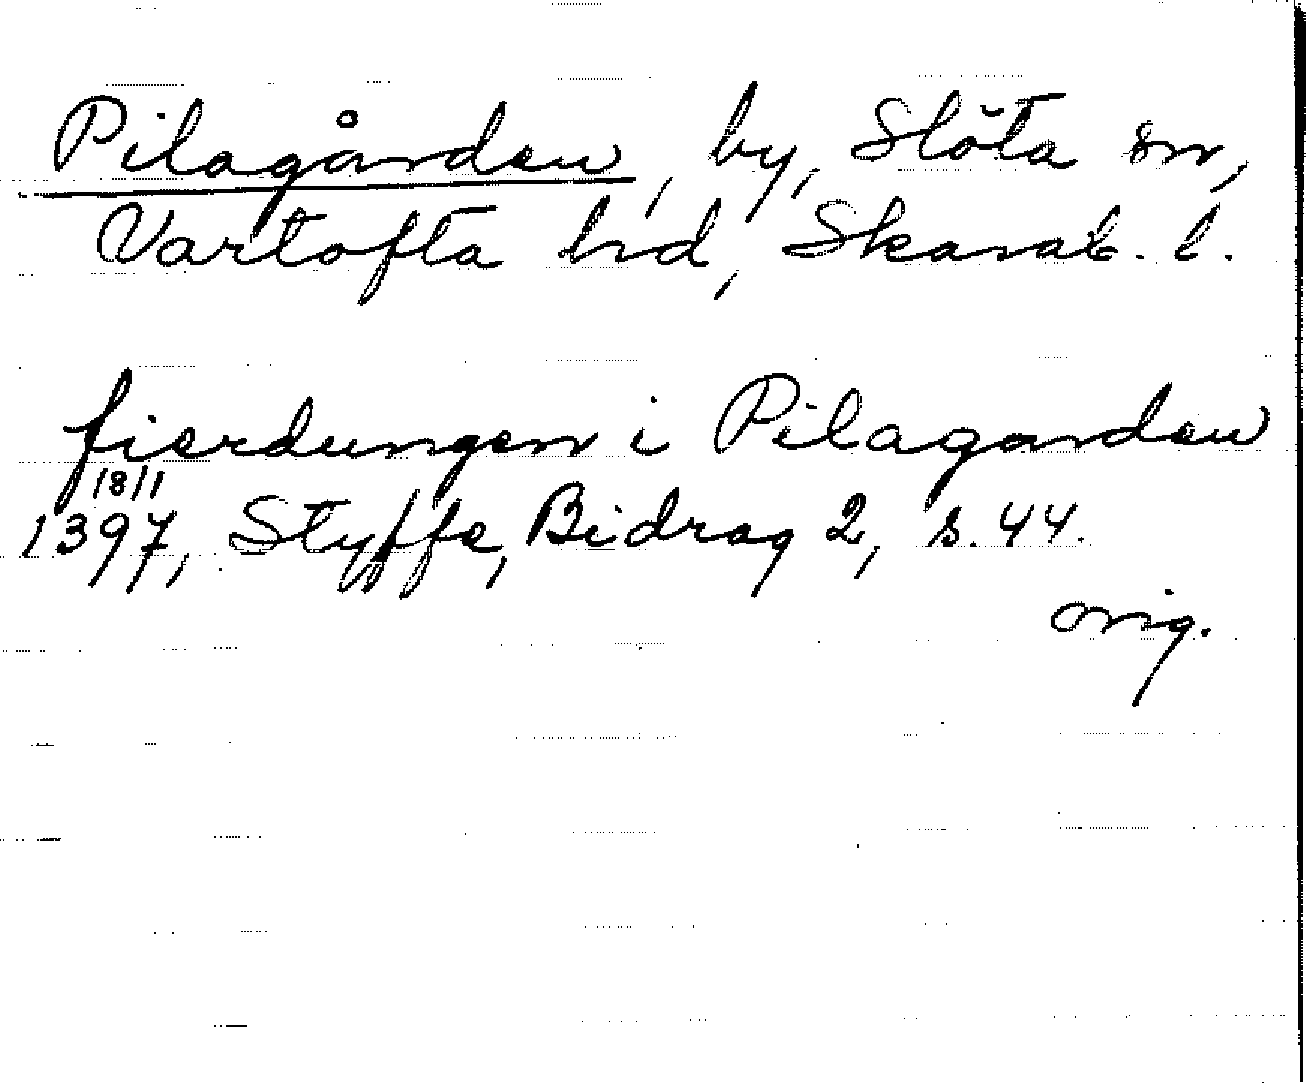 Pilagården, by, Slöta sn,
Vartofta hd, Skarab. l.
fierdungen i Pilagarden
18/1
1397, Styffe, Bidrag 2, s. 44.
orig.